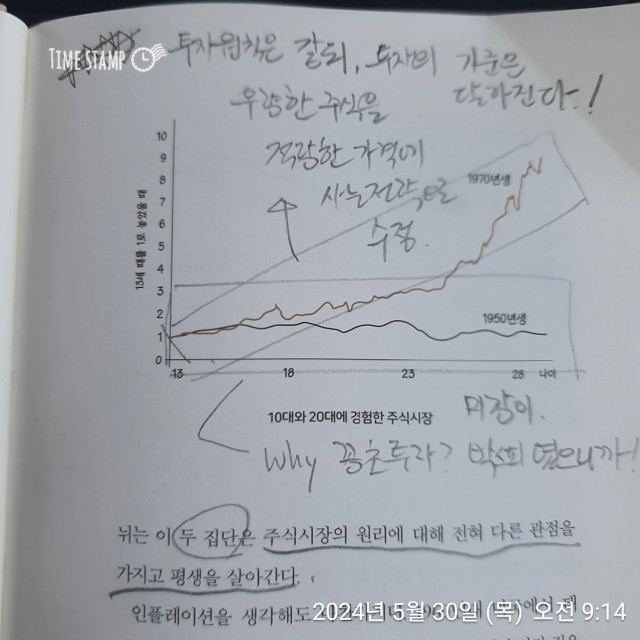 TIMESTAMP
투자원칙은 같되, 투자의 기준은
달라진다!
우량한 주식을
적당한 가격에
사는 전략으로
수정.
10
9
8
7
6
5
4
3
2
1
0
13세 때를 1로 놓았을 때
1970년생
1950년생
13
18
23
28
나이
10대와 20대에 경험한 주식시장
Why 꽁초투자? 박스피 였으니까!
뉘는 이 두 집단은 주식시장의 원리에 대해 전혀 다른 관점을
가지고 평생을 살아간다.
인플레이션을 생각해도
2024년 5월 30일 (목) 오전 9:14